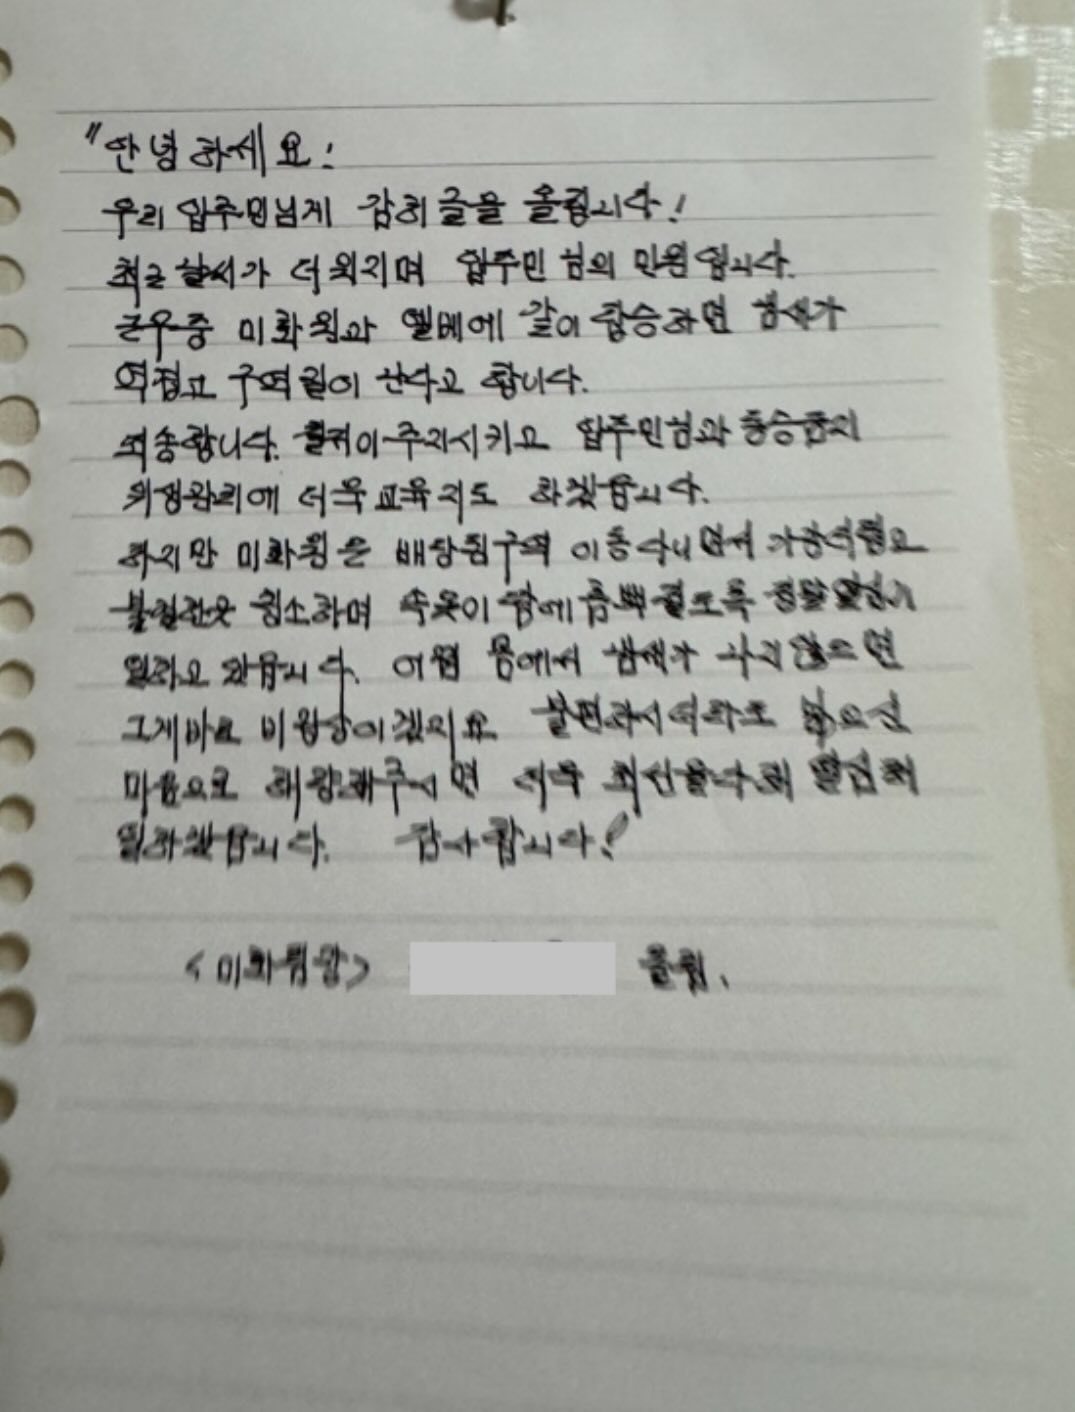 "안녕하세요!
우리 입주민님게 감히 글을 올립니다!
최근 날씨가 더워지며 입주민님의 민원입니다.
근무중 미화원과 엘베에 같이 탑승하면 냄새가
역겹고 구역질이 난다고 합니다.
죄송합니다. 철저이 주지시키고 입주민님과 동승금지
위생관리에 더욱 교육지도 하겠습니다.
하지만 미화원은 배당된구역 이동 다니면서
청소하며 속옷이 땀에 흠뻑 젖도록 정말 열심히
일하고 있습니다. 어찌 몸에서 냄새가 나지 않으면
그게바로 비정상이겠지요. 불편하시더라도 넓으신
마음으로 해량해주시면 저두 최선을다해 열심히
일하겠습니다. 감사합니다!
<미화팀장> 올림.